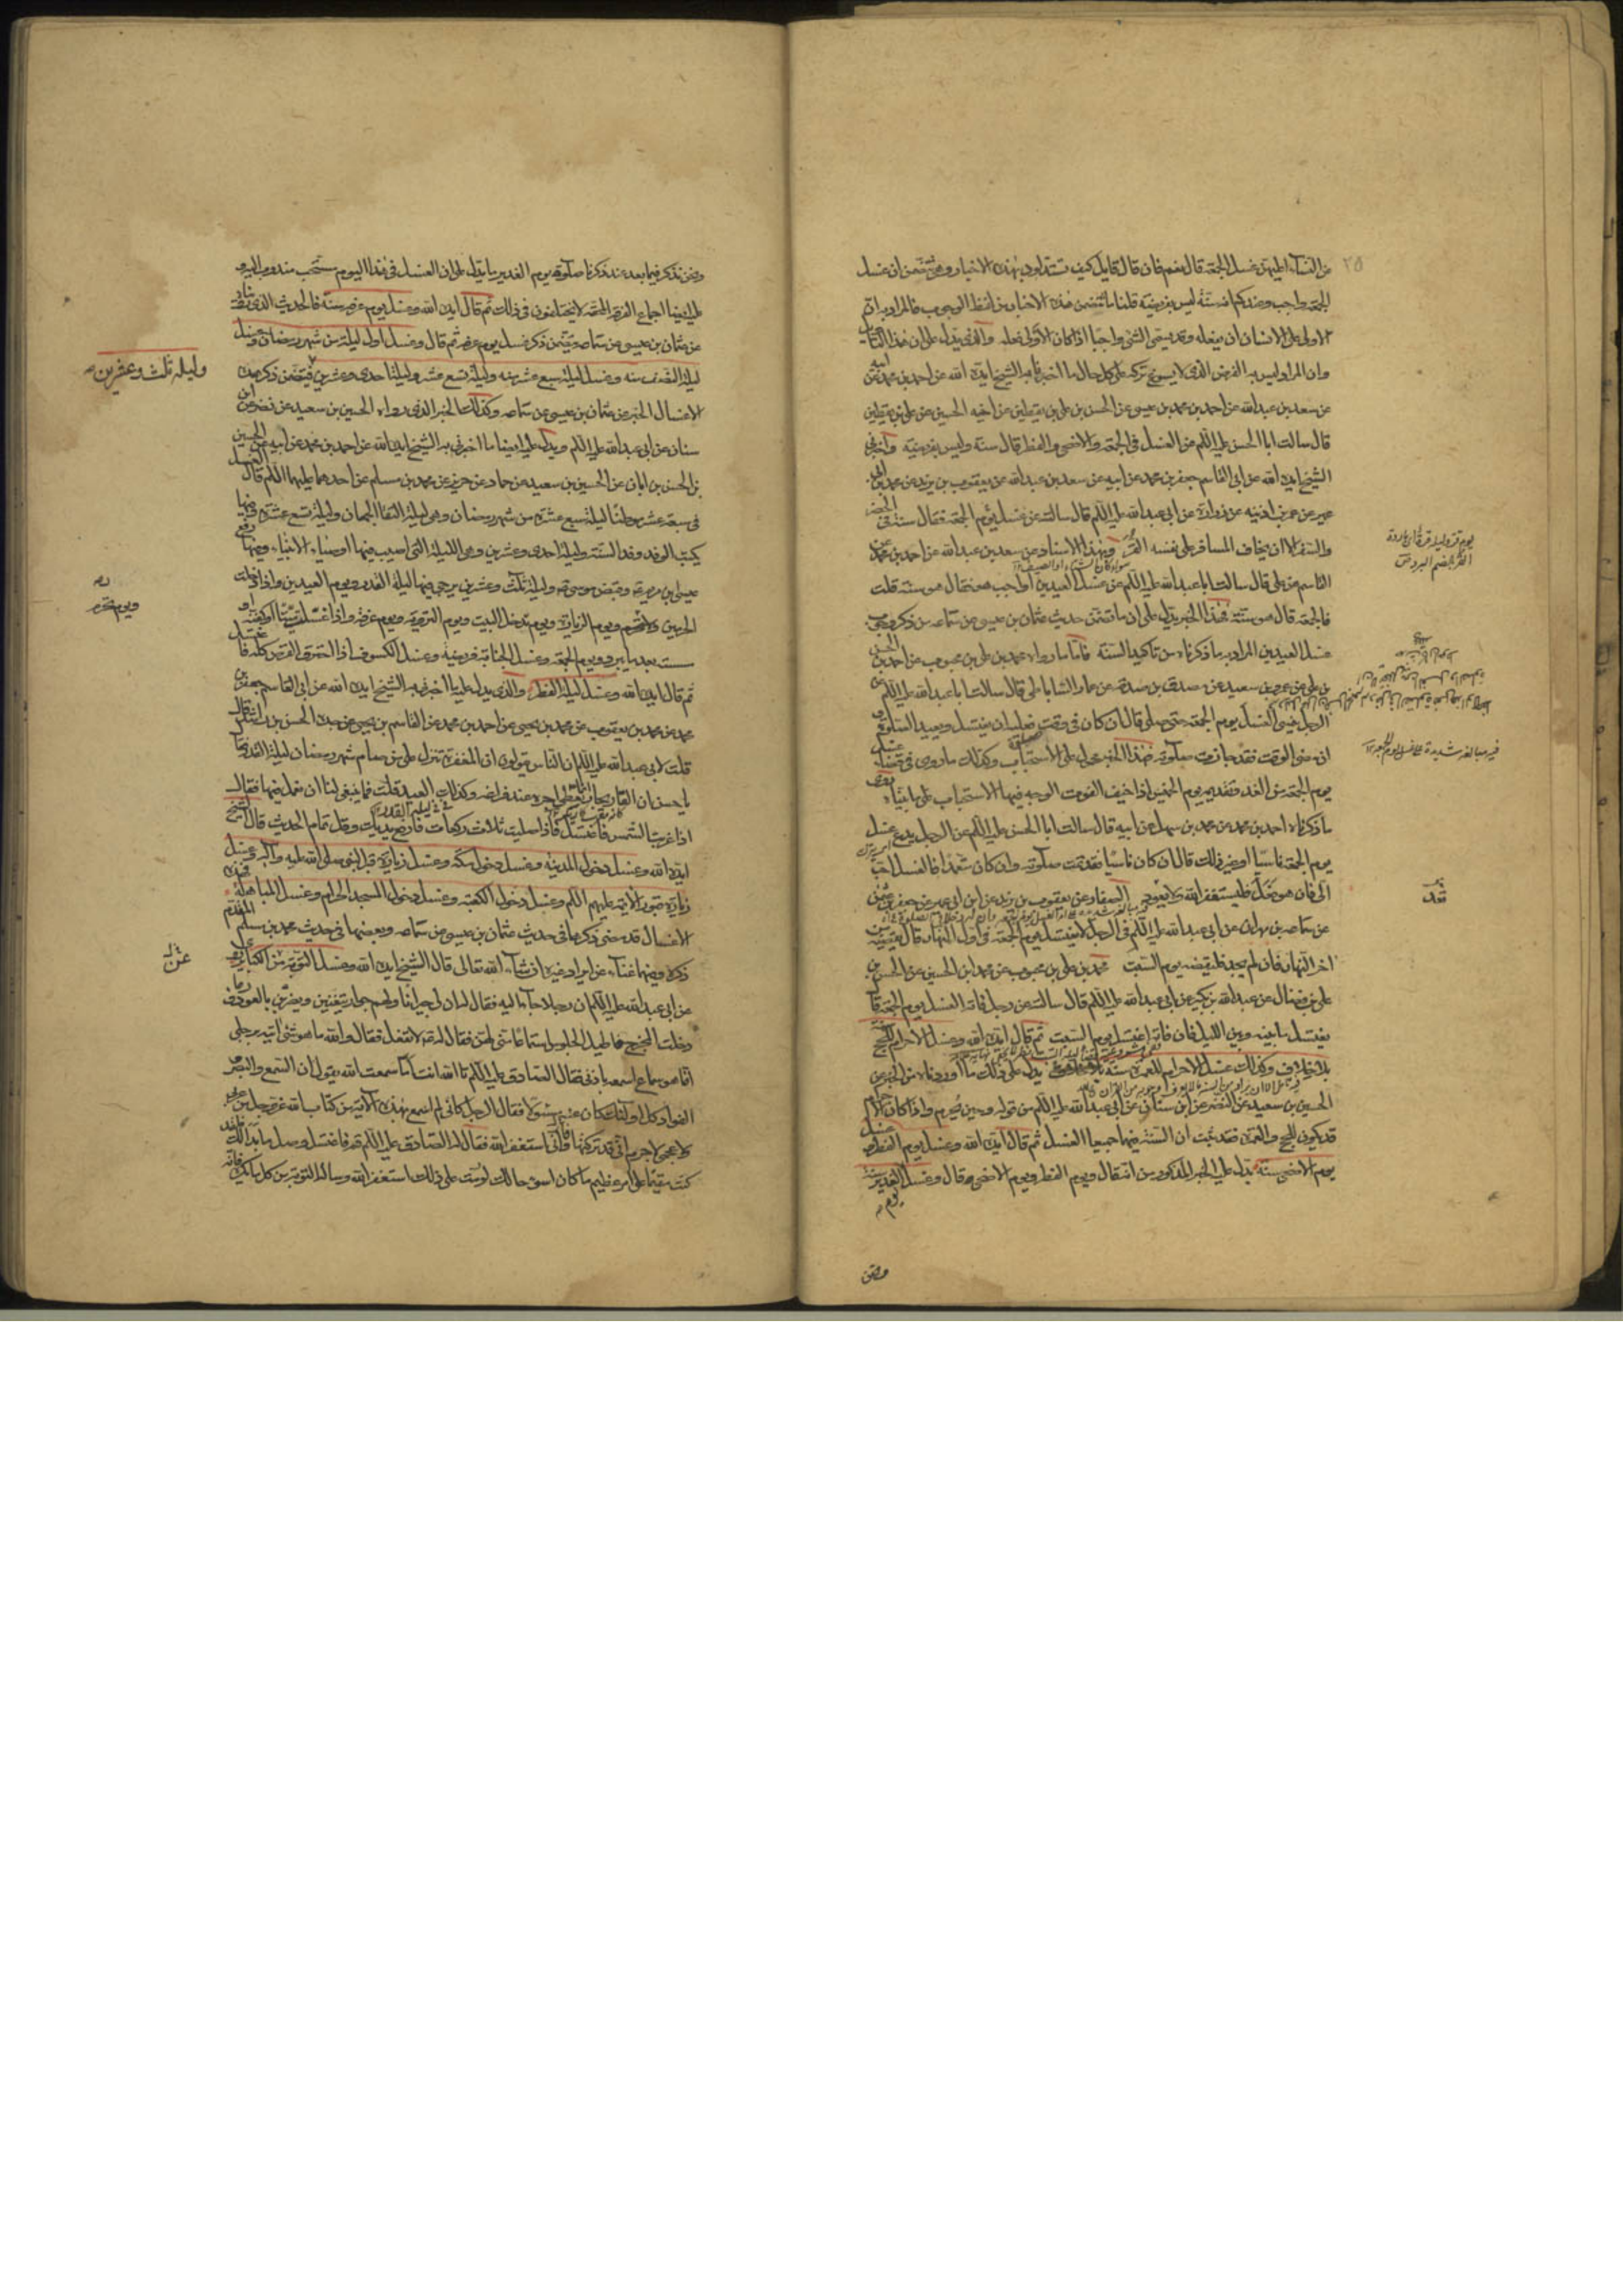 عن النساء اعليهن غسل الجمعة قال نعم فان قال قايل كيف تستدلون بهذه الاخبار وهي تتضمن ان غسل
الجمعة واجب وعندكم انه سنة ليس بفريضة قلنا ما يتضمن هذه الاخبار من لفظ الوجوب فالمراد به ان
الاولى على الانسان ان يفعله وقد يسمى الشئ واجبا اذا كان الاولى فعله والذي يدل على ان هذا التاويل
وان المراد ليس به الفرض الذي لا يسوغ تركه على كل حال ما اخبرنا به الشيخ ايده الله عن احمد بن محمد عن ابيه
عن سعد بن عبد الله عن احمد بن محمد بن عيسى عن الحسن بن علي بن يقطين عن اخيه الحسين عن علي بن يقطين
قال سالت ابا الحسن عليه السلم عن الغسل في الجمعة والاضحى والفطر قال سنة وليس بفريضة واخبرني
الشيخ ايده الله عن ابي القاسم جعفر بن محمد عن ابيه عن سعد بن عبد الله عن يعقوب بن يزيد عن محمد بن ابي
عمير عن عمر بن اذينه عن زرارة عن ابي عبد الله عليه السلم قال سالته عن غسل يوم الجمعة فقال سنة في الحضر
والسفر الا ان يخاف المسافر على نفسه القر وبهذا الاسناد عن سعد بن عبد الله عن احمد بن محمد عن
القاسم عن علي قال سالت ابا عبد الله عليه السلم عن غسل العيدين اواجب هو فقال هو سنة قلت
فالجمعة قال هو سنة فهذا الخبر يدل على ان ما تضمن حديث عثمان بن عيسى عن سماعه من ذكر وجوب
غسل العيدين المراد به ما ذكرناه من تاكيد السنة فاما ما رواه محمد بن علي بن محبوب عن احمد بن الحسن
بن علي عن عمرو بن سعيد عن مصدق بن صدقه عن عمار الساباطي قال سالت ابا عبد الله عليه السلم عن
الرجل ينسى الغسل يوم الجمعة حتى صلى قال ان كان في وقت فعليه ان يغتسل ويعيد الصلوة و
ان مضى الوقت فقد جازت صلوته فهذا الخبر محمول على الاستحباب وكذلك ما روي في قضاء غسل
يوم الجمعة من الغد وتقديمه يوم الخميس اذا خيف الفوت الوجه فيها الاستحباب على ما بيناه روى
ما ذكرناه احمد بن محمد عن محمد بن سهل عن ابيه قال سالت ابا الحسن عليه السلم عن الرجل يدع غسل
يوم الجمعة ناسيا او غير ذلك قال ان كان ناسيا فقد تمت صلوته وان كان متعمدا فالغسل احب
الي فان هو فعل فليستغفر الله ولا يعود الصفار عن يعقوب بن يزيد عن ابن ابي عمير عن جعفر بن عثمن
عن سماعه بن مهران عن ابي عبد الله عليه السلم في الرجل لا يغتسل يوم الجمعة في اول النهار قال يقضيه من
اخر النهار فان لم يجد فليقضه يوم السبت محمد بن علي بن محبوب عن محمد بن الحسين عن الحسن بن
علي بن فضال عن عبد الله بن بكير عن ابي عبد الله عليه السلم قال سالته عن رجل فاته الغسل يوم الجمعة قال
يغتسل ما بينه وبين الليل فان فاته اغتسل يوم السبت ثم قال ايده الله وغسل الاحرام للحج سنة
بلا خلاف وكذلك غسل الاحرام للعمرة سنة يدل على ذلك ما اوردناه من الخبر عن
الحسين بن سعيد عن النضر عن ابن سنان عن ابي عبد الله عليه السلم من قوله وحين تحرم واذا كان الاحرام
قد يكون للحج والعمرة فقد ثبت ان السنة فيها جميعا الغسل ثم قال ايده الله وغسل يوم الفطر وغسل
يوم الاضحى سنة يدل عليه الخبر المذكور من انه قال ويوم الفطر ويوم الاضحى قال وغسل يوم الغدير سنة
القر بالضم البرد ص
ونحن نذكر فيما بعد عند ذكرنا صلوة يوم الغدير ما يدل على ان الغسل في هذا اليوم مستحب مندوب اليه و
عليه ايضا اجماع الفرقة المحقة لا يختلفون في ذلك ثم قال ايده الله وغسل يوم عرفه سنة فالحديث الذي
عن عثمان بن عيسى عن سماعه يتضمن ذكر غسل يوم عرفه ثم قال وغسل اول ليلة من شهر رمضان وغسل
ليلة النصف منه وغسل ليلة سبع عشر منه وليلة تسع عشر وليلة احدى وعشرين فيتضمن ذكر هذه
الاغسال الخبر عن عثمان بن عيسى عن سماعه وكذلك الخبر الذي رواه الحسين بن سعيد عن نضر عن ابن
سنان عن ابي عبد الله عليه السلم ويدل عليه ايضا ما اخبرني به الشيخ ايده الله عن احمد بن محمد عن ابيه عن الحسين
بن الحسن بن ابان عن الحسين بن سعيد عن حماد عن حريز عن محمد بن مسلم عن احدهما عليهما السلم قال الغسل
في سبعة عشر موطنا ليلة سبع عشرة من شهر رمضان وهي ليلة التقا الجمعان وليلة تسع عشرة وفيها
يكتب الوفد وفد السنة وليلة احدى وعشرين وهي الليلة التي اصيب فيها اوصياء الانبياء وفيها رفع
عيسى بن مريم وقبض موسى وليلة ثلث وعشرين يرجى فيها ليلة القدر ويوم العيدين واذا دخلت
الحرمين ويوم تحرم ويوم الزيارة ويوم تدخل البيت ويوم التروية ويوم عرفة واذا غسلت ميتا او كفنته او
مسسته بعد ما يبرد ويوم الجمعة وغسل الجنابة فريضة وغسل الكسوف اذا احترق القرص كله فاغتسل
ثم قال ايده الله وغسل ليلة الفطر والذي يدل عليه ما اخبرني به الشيخ ايده الله عن ابي القاسم جعفر بن
محمد عن محمد بن يعقوب عن محمد بن يحيى عن احمد بن محمد عن القاسم بن يحيى عن جده الحسن بن راشد قال
قلت لابي عبد الله عليه السلم ان الناس يقولون ان المغفرة تنزل على من صام شهر رمضان ليلة القدر فقال
يا حسن ان القاريجار انما يعطى اجره عند فراغه وكذلك العيد قلت فما ينبغي لنا ان نعمل فيها فقال
اذا غربت الشمس فاغتسل فاذا صليت ثلاث ركعات فارفع يديك وقل تمام الحديث قال الشيخ
ايده الله وغسل دخول المدينة وغسل دخول مكة وغسل زيارة قبر النبي صلى الله عليه وآله وغسل
زيارة قبور الائمة عليهم السلم وغسل دخول الكعبة وغسل دخول المسجد الحرام وغسل المباهلة فهذه
الاغسال قد مضى ذكرها في حديث عثمان بن عيسى عن سماعه وبعضها في حديث محمد بن مسلم المتقدم
ذكره وفيهما غناء عن ايراد غيره ان شاء الله تعالى قال الشيخ ايده الله وغسل التوبة من الكباير
عن ابي عبد الله عليه السلم ان رجلا جاء اليه فقال له ان لي جيرانا ولهم جوار يتغنين ويضربن بالعود فربما
دخلت المخرج فاطيل الجلوس استماعا مني لهن فقال له لا تفعل فقال والله ما هو شئ اتيه برجلي
انما هو سماع اسمعه باذني فقال الصادق عليه السلم تالله انت اما سمعت الله يقول ان السمع والبصر
الفؤاد كل اولئك كان عنه مسئولا فقال الرجل كاني لم اسمع بهذه الآية من كتاب الله عز وجل من عربي
ولا عجمي لا جرم اني قد تركتها واني استغفر الله فقال له الصادق عليه السلم قم فاغتسل وصل ما بدا لك فلقد
كنت مقيما على امر عظيم ما كان اسوء حالك لو مت على ذلك استغفر الله وساله التوبة من كل ما يكره فانه
وليلة ثلث وعشرين
ويوم تحرم